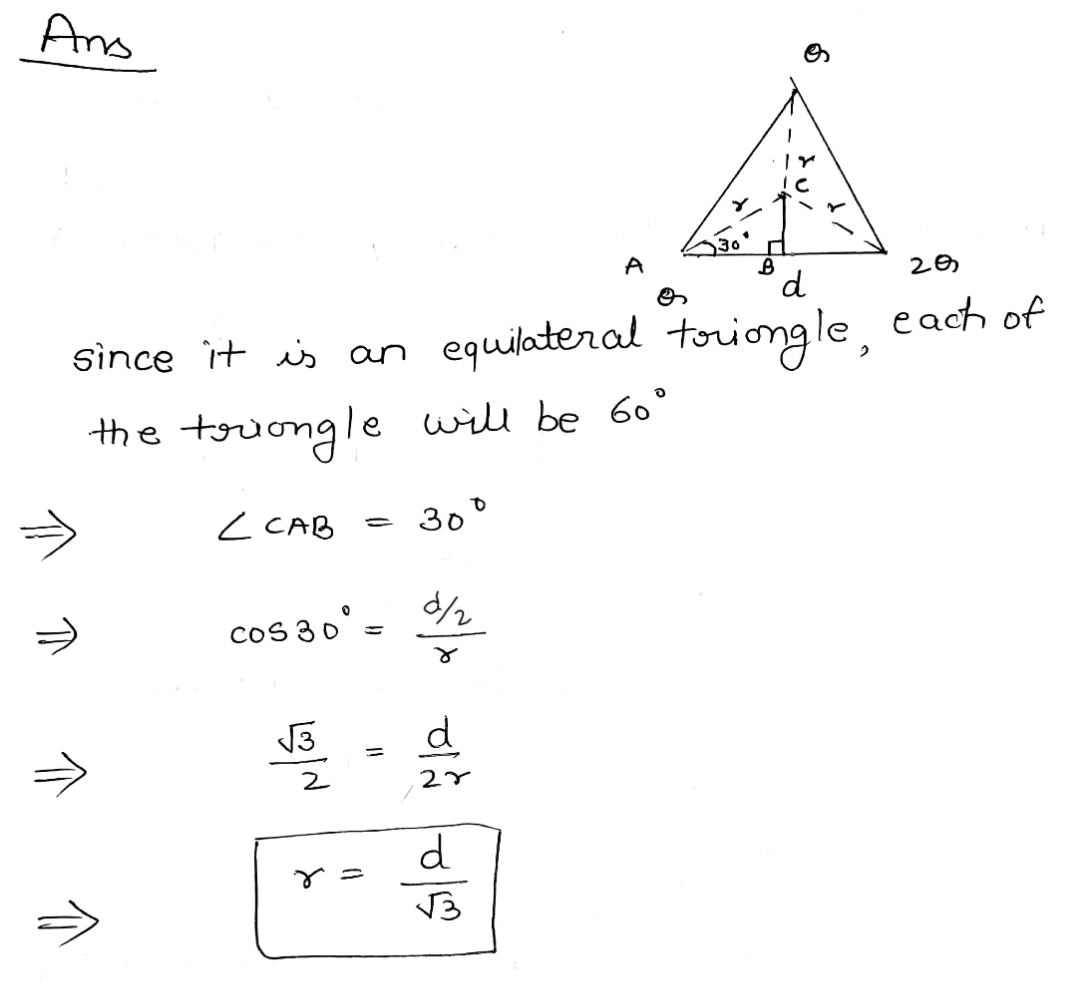 Ans
Q
r
C
r
r
30°
A
B
2Q
Q
d
since it is an equilateral triangle, each of
the triangle will be 60°
⇒ ∠CAB = 30°
⇒ cos30° = d/2 / r
⇒ √3/2 = d/2r
⇒ r = d/√3